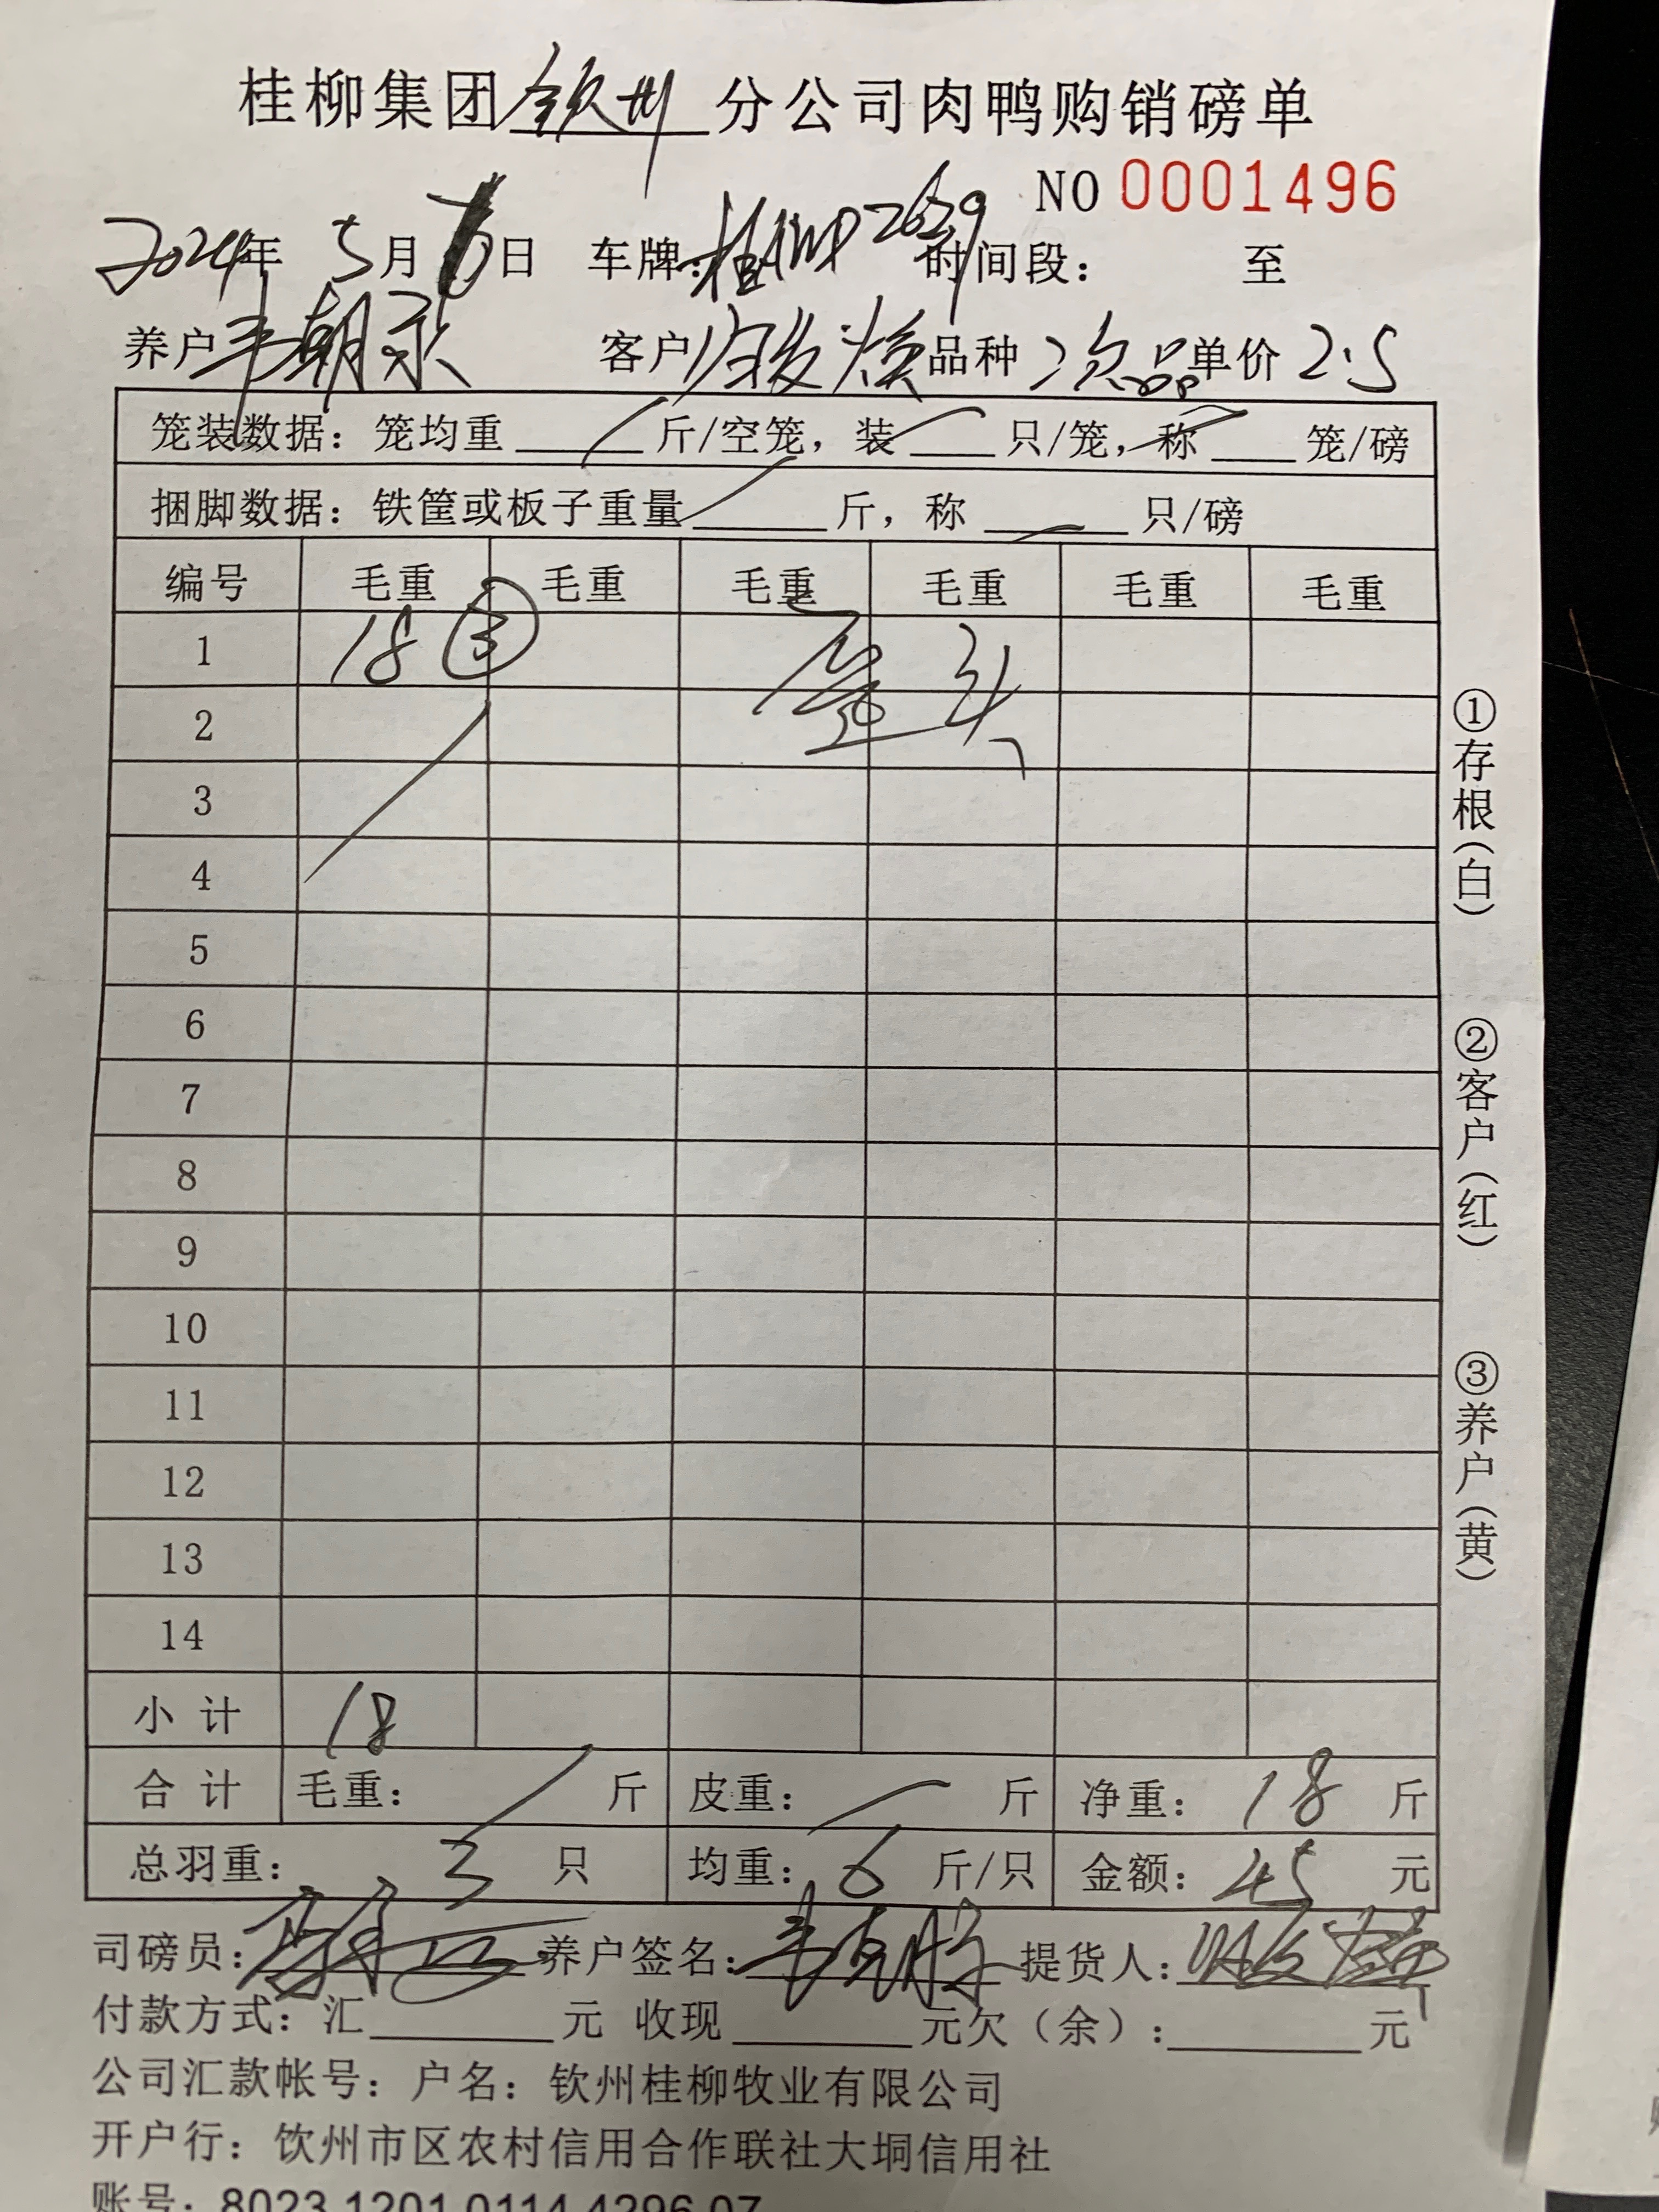 桂柳集团 钦州 分公司肉鸭购销磅单
NO 0001496
2024年 5月 日 车牌:桂AWP2629 时间段: 至
养户 韦朝 客户 焕 品种 次品 单价 2.5
笼装数据:笼均重____斤/空笼,装____只/笼,称____笼/磅
捆脚数据:铁筐或板子重量____斤,称____只/磅
编号 毛重 毛重 毛重 毛重 毛重 毛重
1 18 ③ 头
2
3
4
5
6
7
8
9
10
11
12
13
14
小 计 18
合 计 毛重: 斤 皮重: 斤 净重: 18 斤
总羽重: 3 只 均重: 6 斤/只 金额: 45 元
司磅员: 养户签名: 提货人:
付款方式:汇____元 收现____元欠(余):____元
公司汇款帐号:户名:钦州桂柳牧业有限公司
开户行:钦州市区农村信用合作联社大垌信用社
账号:8023 1201 0114 4296 07
①存根(白) ②客户(红) ③养户(黄)